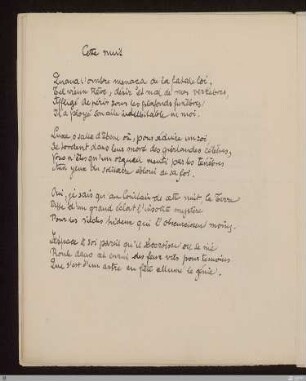 Cette nuit
Quand l'ombre menaça de la fatale loi,
Tel vieux Rêve, désir et mal de mes vertèbres,
Affligé de périr sous les plafonds funèbres
Il a ployé son aile indubitable en moi.
Luxe, ô salle d'ébène où, pour séduire un roi
Se tordent dans leur mort des guirlandes célèbres,
Vous n'êtes qu'un orgueil menti par les ténèbres
Aux yeux du solitaire ébloui de sa foi.
Oui, je sais qu'au lointain de cette nuit, la Terre
Jette d'un grand éclat l'insolite mystère
Pour les siècles hideux qui l'obscurcissent moins.
L'espace à soi pareil qu'il s'accroisse ou se nie
Roule dans cet ennui des feux vils pour témoins
Que s'est d'un astre en fête allumé le génie.